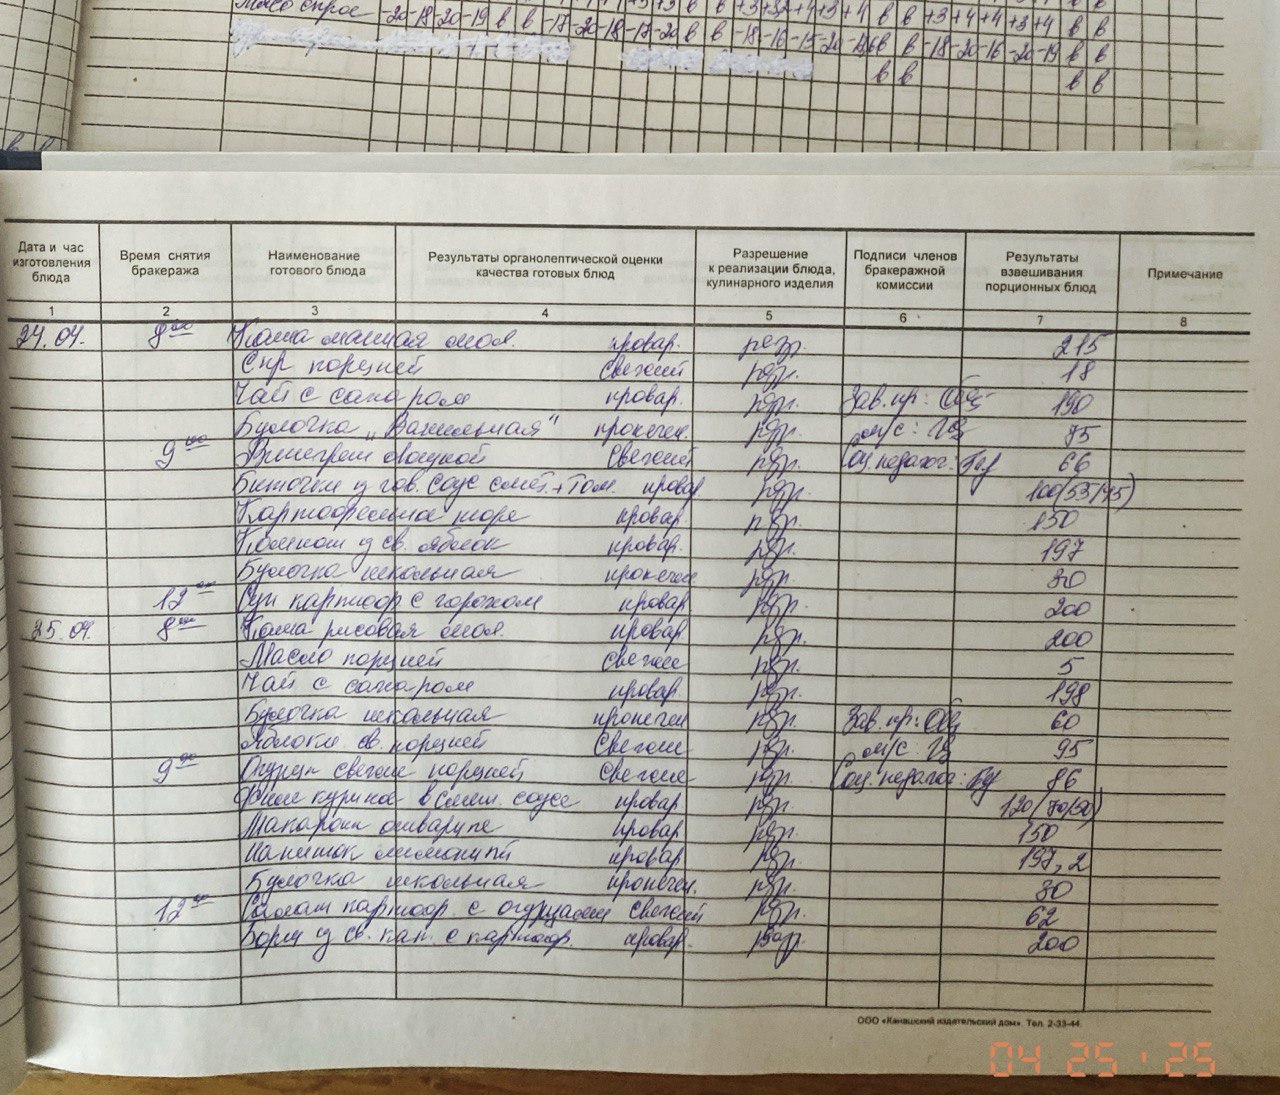 Мясо спрос -20 -18 -20 -19 в в -17 -20 -18 -17 -20 в в -18 -16 -15 -20 в в -18 -20 -16 -20 -19 в в
в в в в
Дата и час изготовления блюда
Время снятия бракеража
Наименование готового блюда
Результаты органолептической оценки качества готовых блюд
Разрешение к реализации блюда, кулинарного изделия
Подписи членов бракеражной комиссии
Результаты взвешивания порционных блюд
Примечание
1 2 3 4 5 6 7 8
24.04. 8 00 Каша манная мол. провар. разр. 215
Сыр порцией Свежий разр. 18
Чай с сахаром провар. разр. Зав. пр: 190
Булочка "Ванильная" пропечен. разр. м/с: 75
9 00 Винегрет овощной Свежий разр. Соц.педагог: 66
Биточки из гов. соус смет.+том. провар разр. 100(55/45)
Картофельное пюре провар разр. 150
Компот из св. яблок провар. разр. 197
Булочка школьная пропечен разр.
12 00 Суп картоф с горохом провар разр. 200
25.04. 8 00 Каша рисовая мол. провар разр. 200
Масло порцией свежее разр. 5
Чай с сахаром провар разр. 198
Булочка школьная пропечен разр. Зав. пр: 60
Яблоки св. порцией Свежие разр. м/с: 95
9 00 Огурцы свежие порцией Свежие разр. Соц.педагог: 86
Филе куриное в смет. соусе провар разр. 120/
Макароны отварные провар разр. 150
Напиток лимонный провар разр. 197,2
Булочка школьная пропечен. разр. 80
12 00 Салат картоф. с огурцами свежий разр. 62
Борщ из св. кап. с картоф. провар. разр. 200
ООО «Канашский издательский дом». Тел. 2-33-44.
04 25 ' 25